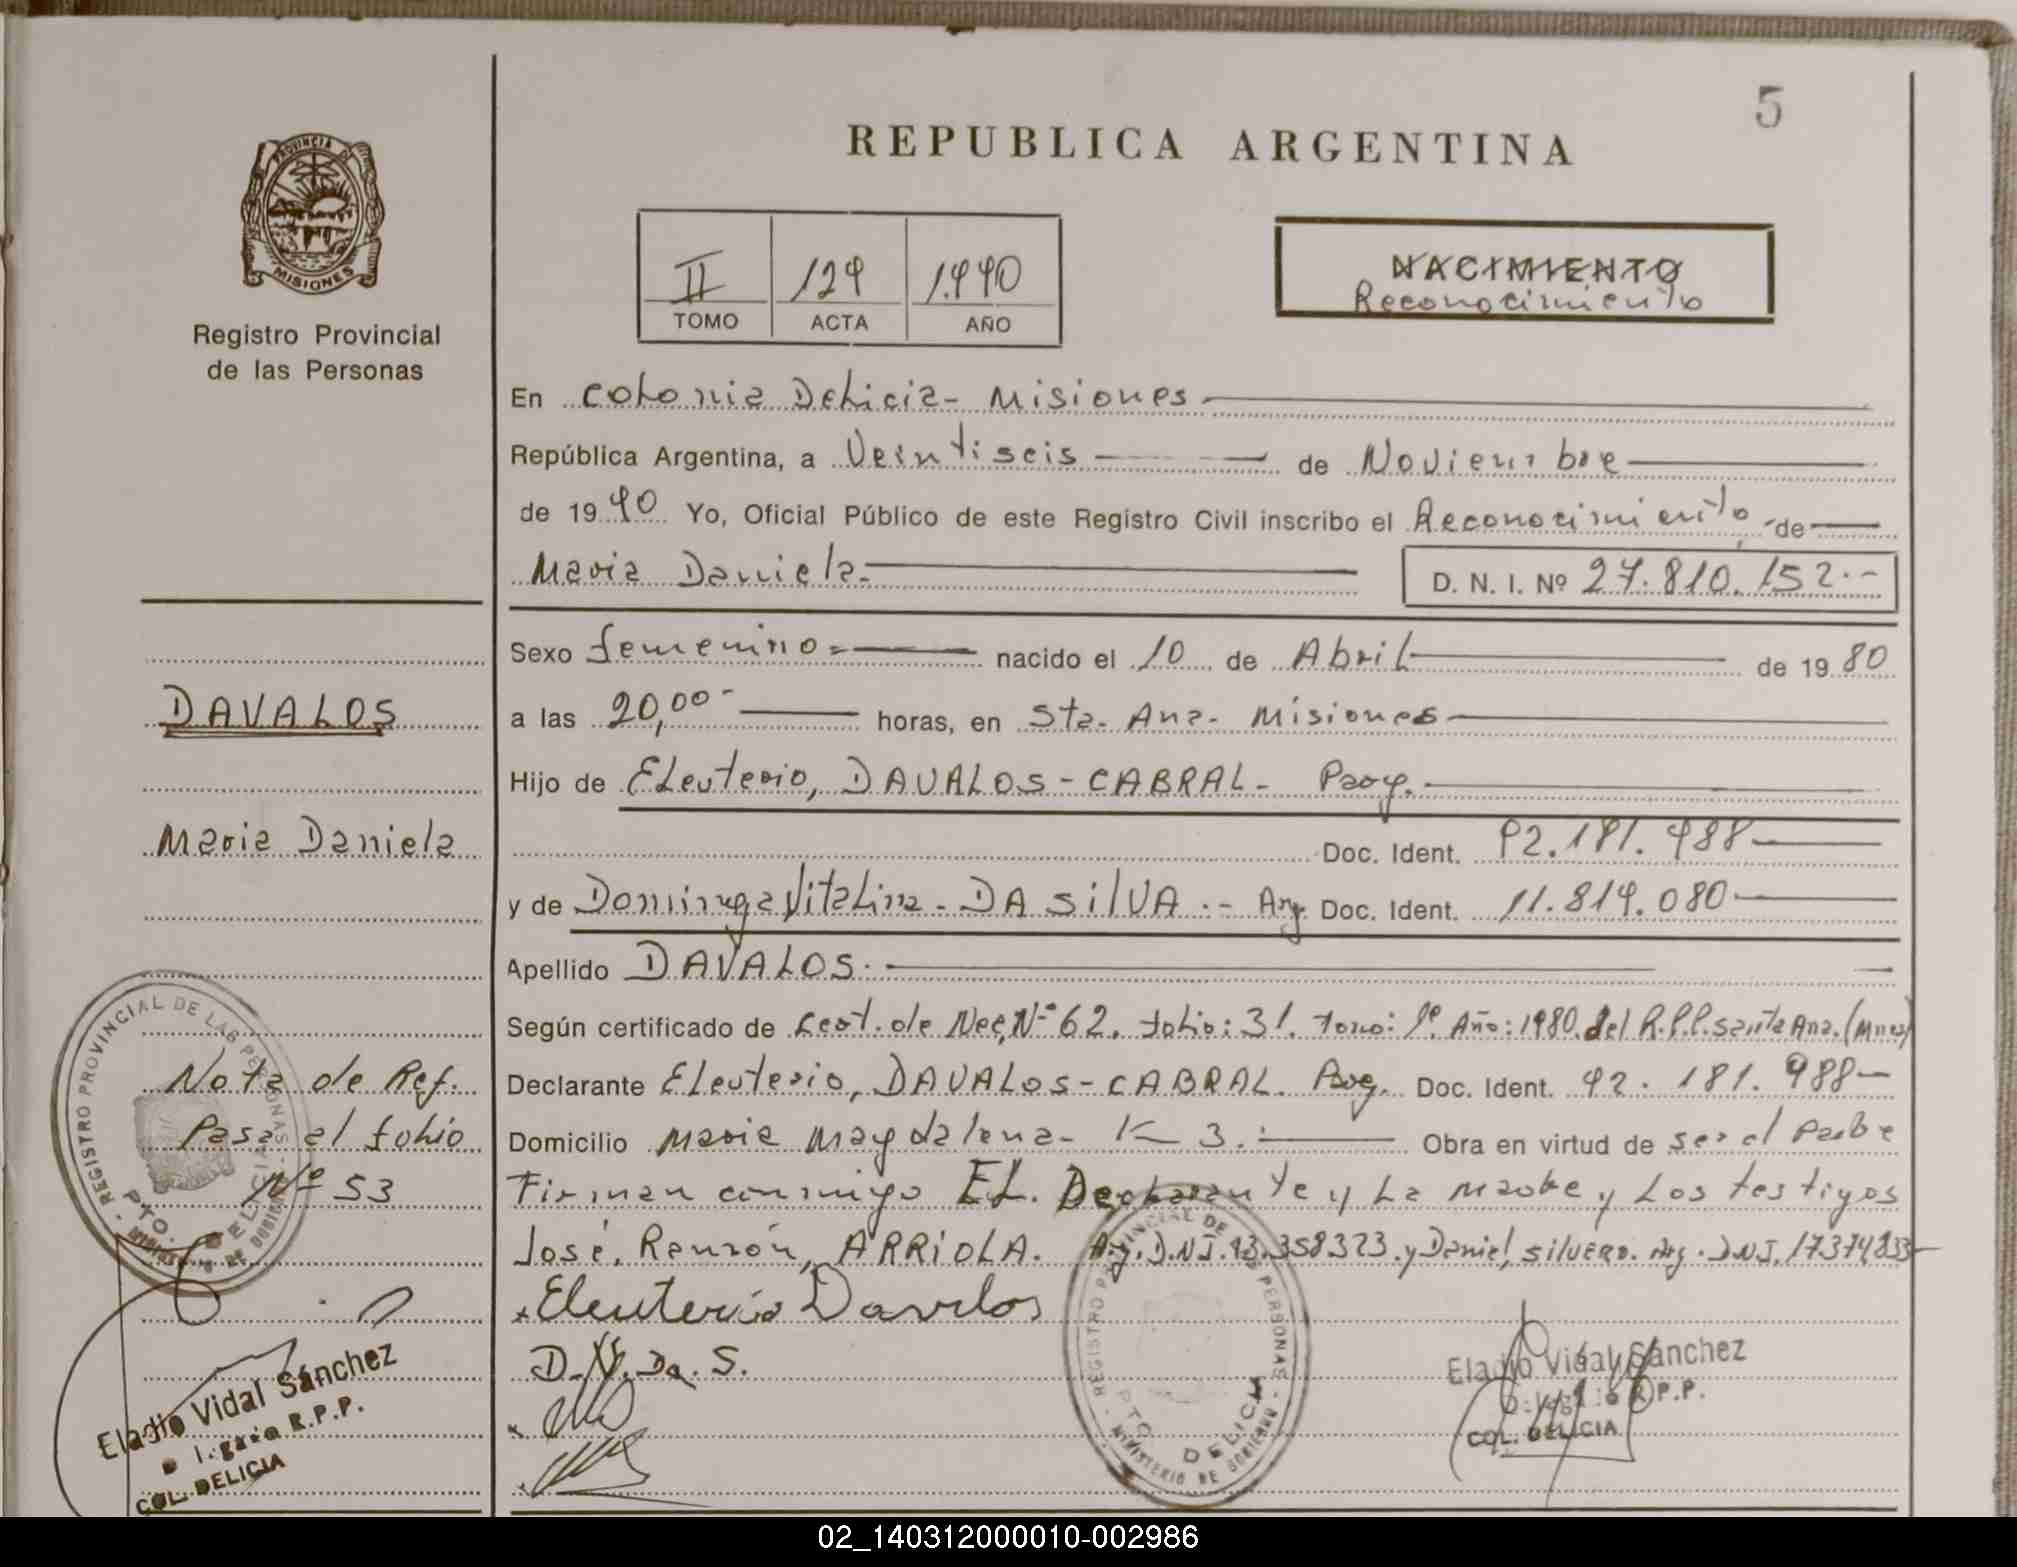 5
REPUBLICA ARGENTINA
PROVINCIA DE
MISIONES
Registro Provincial
de las Personas
II 129 1.990
TOMO ACTA AÑO
NACIMIENTO
Reconocimiento
En Colonia Delicia - Misiones
República Argentina, a Veintiseis de Noviembre
de 19 90 Yo, Oficial Público de este Registro Civil inscribo el Reconocimiento de
Maria Daniela.- D. N. I. Nº 27.810.152.-
Sexo femenino nacido el 10 de Abril de 19 80
a las 20,00 horas, en Sta. Ana - Misiones
Hijo de Eleuterio, DAVALOS - CABRAL - Parg.
Doc. Ident. 92.181.988
y de Dominga Vitalina - DA SILVA .- Arg. Doc. Ident. 11.819.080
Apellido DAVALOS.
Según certificado de Cert. de Nac. Nº 62. folio: 31. tomo: 1º. Año: 1980. del R.P.P. Santa Ana. (Mnes)
Declarante Eleuterio, DAVALOS - CABRAL. Parg. Doc. Ident. 92.181.988
Domicilio Maria Magdalena - K 3. Obra en virtud de ser el Padre
Firman conmigo EL. Declarante y La Madre y Los testigos
José, Ramón, ARRIOLA. Arg. D.N.I. 13.358.323. y Daniel, SILVERO. Arg. D.N.I. 17.374.833
Eleuterio Davalos
D. V. Da. S.
DAVALOS
Maria Daniela
Nota de Ref.
Pasa al folio
Nº 53
REGISTRO PROVINCIAL DE LAS PERSONAS
PTO. DELICIA
MINISTERIO DE GOBIERNO
Eladio Vidal Sánchez
R.P.P.
COL. DELICIA
REGISTRO PROVINCIAL DE LAS PERSONAS
PTO. DELICIA
MINISTERIO DE GOBIERNO
Eladio Vidal Sánchez
R.P.P.
COL. DELICIA
02_140312000010-002986